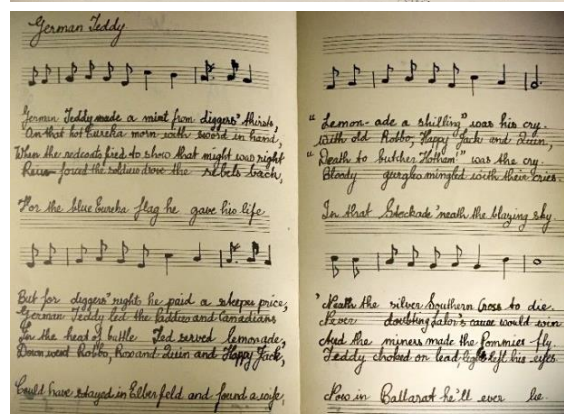 German Teddy
German Teddy made a mint from diggers' thirsts,
On that hot Eureka morn with sword in hand,
When the redcoats fired to show that might was right
forced the soldiers drove the rebels back,
For the blue Eureka flag he gave his life
But for diggers' rights he paid a steeper price,
German Teddy led the Paddies and Canadians
In the heat of battle Ted served lemonade,
Down went Robbo, Ross and Quin and Happy Jack,
Could have stayed in Elberfeld and found a wife,
"Lemon-ade a shilling" was his cry.
With old Robbo, Happy Jack and Quin,
"Death to butcher Hotham" was the cry.
Bloody gurgles mingled with their cries.
In that Stockade 'neath the blazing sky
'Neath the silver Southern Cross to die.
Never doubting Lalor's cause would win
And the miners made the Pommies fly
Teddy choked on lead, light left his eyes.
Now in Ballarat he'll ever lie.